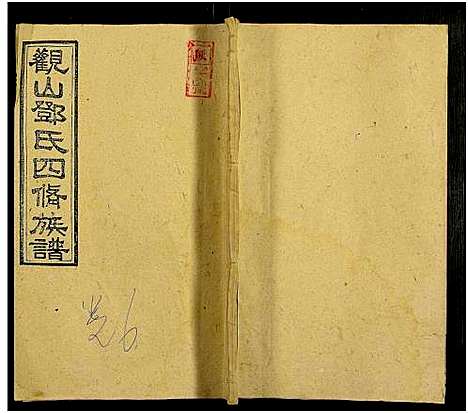 觀山鄧氏四脩族譜